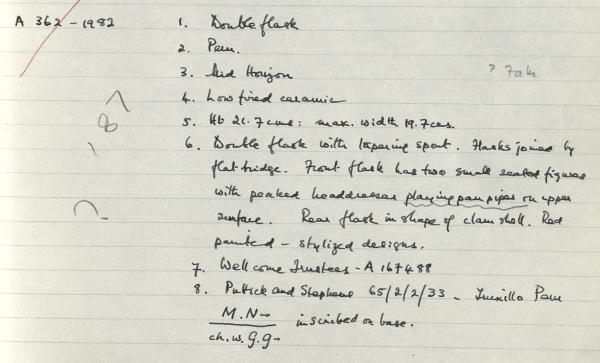 A 362 - 1982
1. Double flask
2. Peru.
3. Mid Horizon
4. Low fired ceramic
5. Ht 21.7 cms: max. width 19.7 cms.
6. Double flask with tapering spout. Flasks joined by
flat bridge. Front flask has two small seated figures
with peaked headdresses playing pan pipes on upper
surface. Rear flask in shape of clam shell. Red
painted - stylized designs.
7. Wellcome Trustees - A 167488
8. Puttick and 65/2/2/33 - Truxillo Peru
M.N- inscribed on base.
ch. w. G.G-